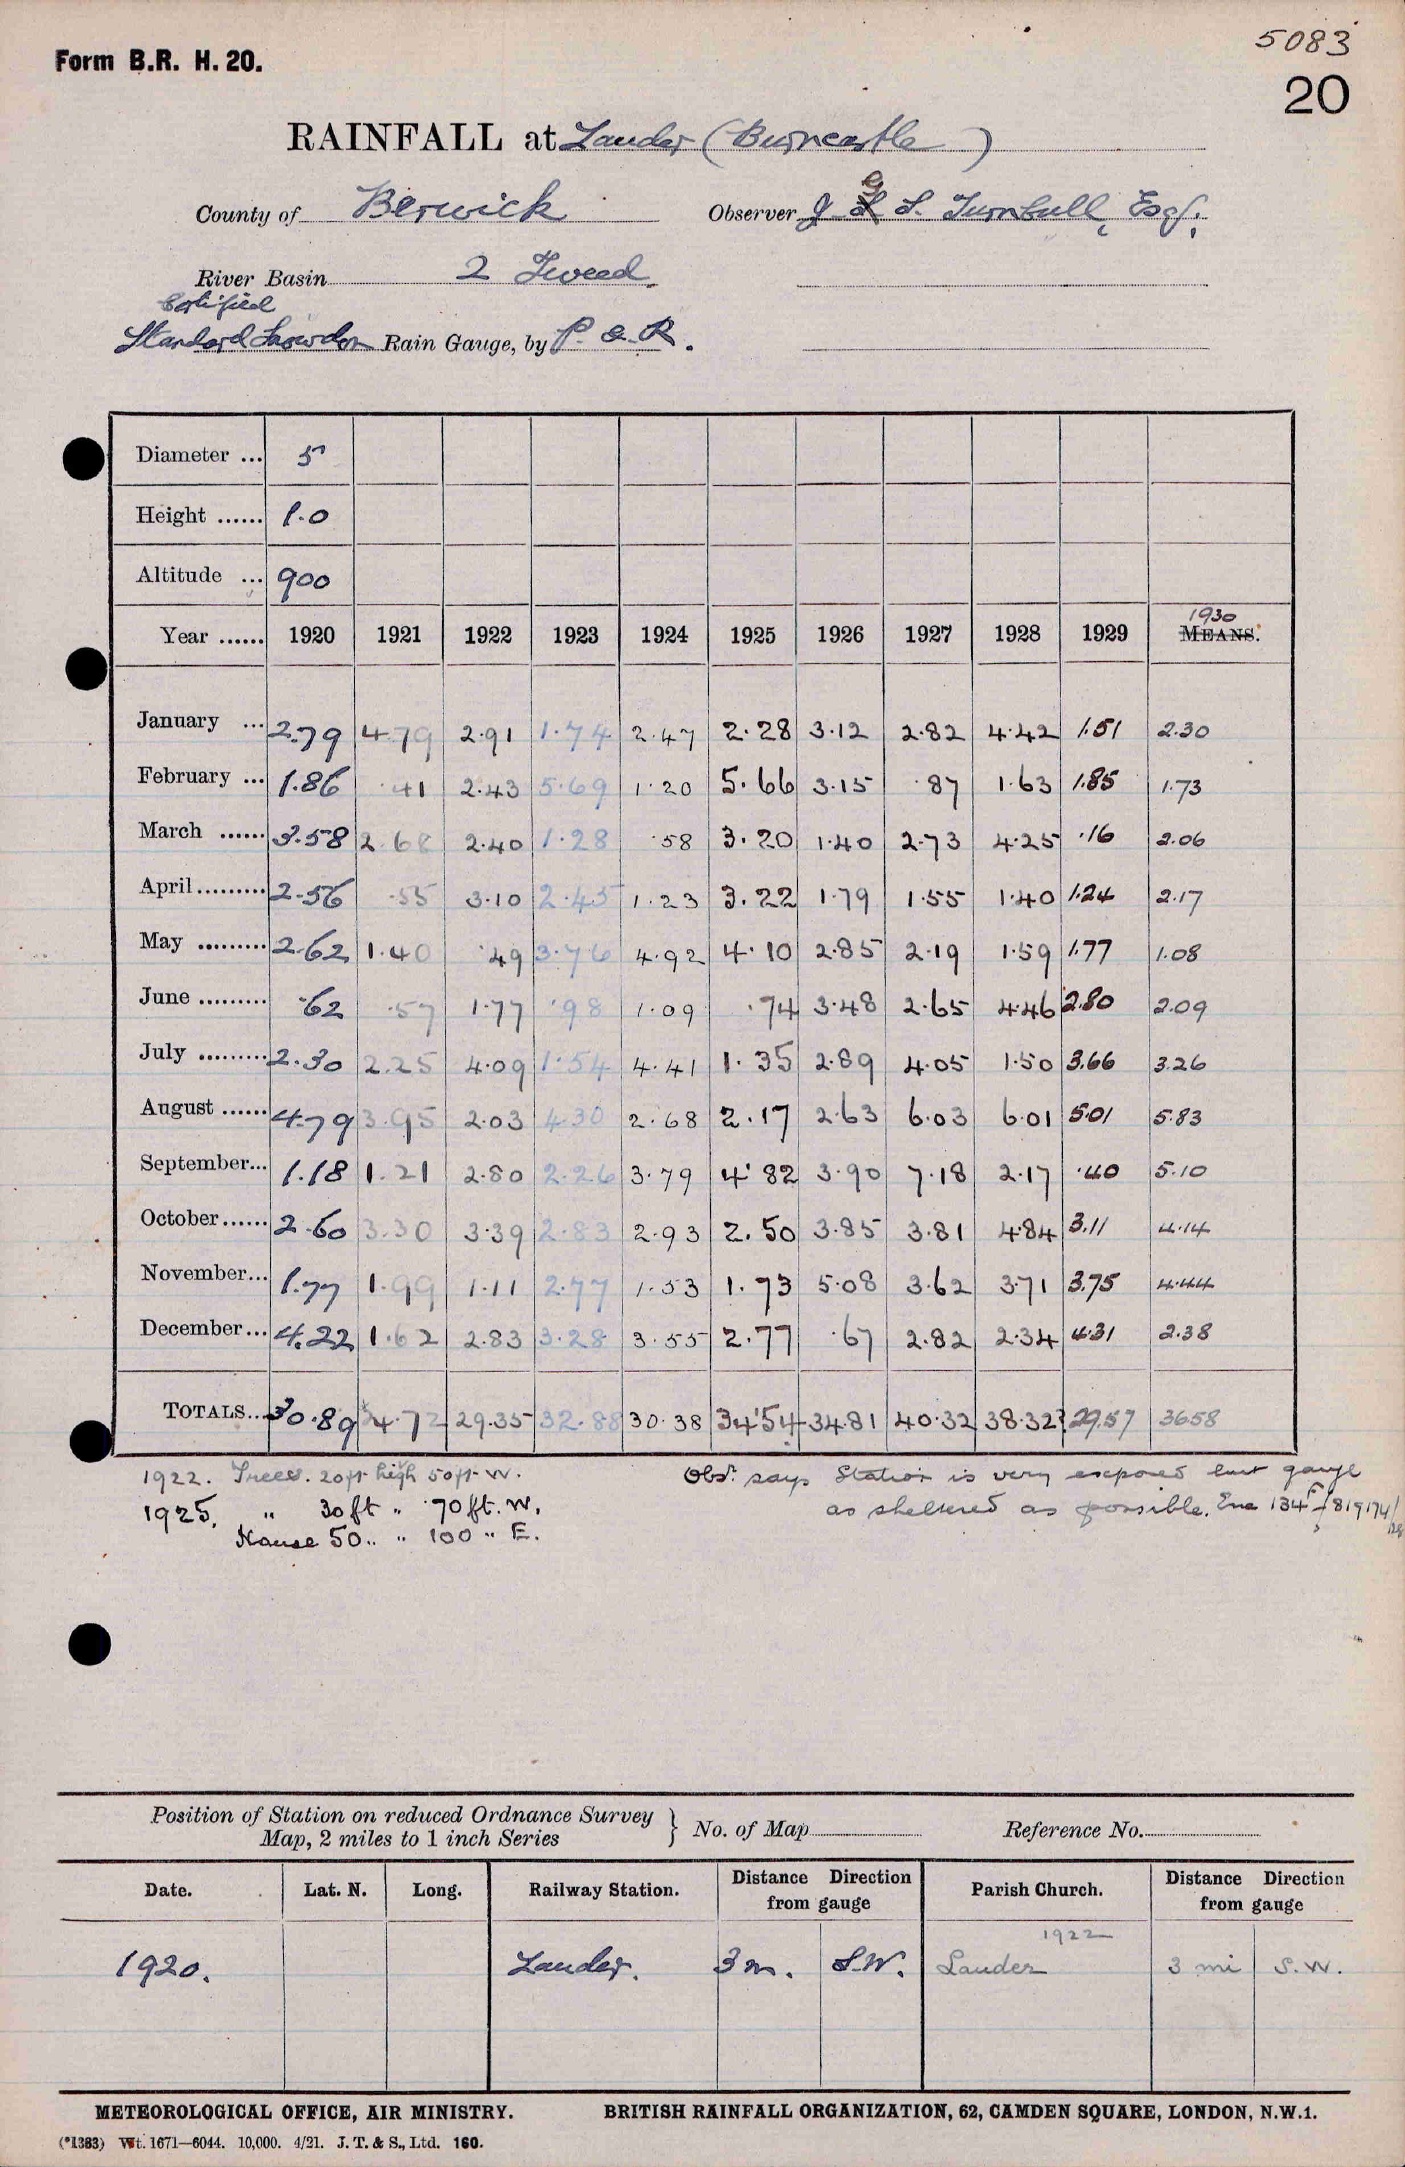 5083
Form B.R. H. 20.
20
RAINFALL at Lauder (Burncastle)
County of Berwick Observer J G S. Turnbull, Esq.
River Basin 2 Tweed.
Certified
Standard Snowdon Rain Gauge, by P. & R.
Diameter ... 5
Height ...... 1.0
Altitude ... 900
1930
Year ...... 1920 1921 1922 1923 1924 1925 1926 1927 1928 1929 MEANS.
January ... 2.79 4.79 2.91 1.74 2.47 2.28 3.12 2.82 4.42 1.51 2.30
February ... 1.86 .41 2.43 5.69 1.20 5.66 3.15 .87 1.63 1.85 1.73
March ...... 3.58 2.68 2.40 1.28 .58 3.20 1.40 2.73 4.25 .16 2.06
April ......... 2.56 .55 3.10 2.45 1.23 3.22 1.79 1.55 1.40 1.24 2.17
May ......... 2.62 1.40 .49 3.76 4.92 4.10 2.85 2.19 1.59 1.77 1.08
June ......... .62 .57 1.77 .98 1.09 .74 3.48 2.65 4.46 2.80 2.09
July ......... 2.30 2.25 4.09 1.54 4.41 1.35 2.89 4.05 1.50 3.66 3.26
August ...... 4.79 3.95 2.03 4.30 2.68 2.17 2.63 6.03 6.01 5.01 5.83
September... 1.18 1.21 2.80 2.26 3.79 4.82 3.90 7.18 2.17 .40 5.10
October...... 2.60 3.30 3.39 2.83 2.93 2.50 3.85 3.81 4.84 3.11 4.14
November... 1.77 1.99 1.11 2.77 1.53 1.73 5.08 3.62 3.71 3.75 4.44
December... 4.22 1.62 2.83 3.28 3.55 2.77 .67 2.82 2.34 4.31 2.38
TOTALS... 30.89 24.72 29.35 32.88 30.38 34.54 34.81 40.32 38.32 29.57 36.58
1922. Trees. 20ft high 50ft W. Obsr. says Station is very exposed but gauge
1925. " 30ft " 70ft. W. as sheltered as possible.
House 50 " " 100 " E.
Position of Station on reduced Ordnance Survey
Map, 2 miles to 1 inch Series } No. of Map Reference No.
Date. Lat. N. Long. Railway Station. Distance Direction from gauge Parish Church. Distance Direction from gauge
1922
1920. Lauder. 3 m. S.W. Lauder 3 mi S.W.
METEOROLOGICAL OFFICE, AIR MINISTRY. BRITISH RAINFALL ORGANIZATION, 62, CAMDEN SQUARE, LONDON, N.W.1.
(*1383) Wt. 1671—6044. 10,000. 4/21. J. T. & S., Ltd. 160.